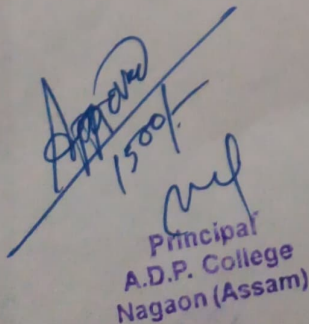 Approved
1500/-
Principal
A.D.P. College
Nagaon (Assam)